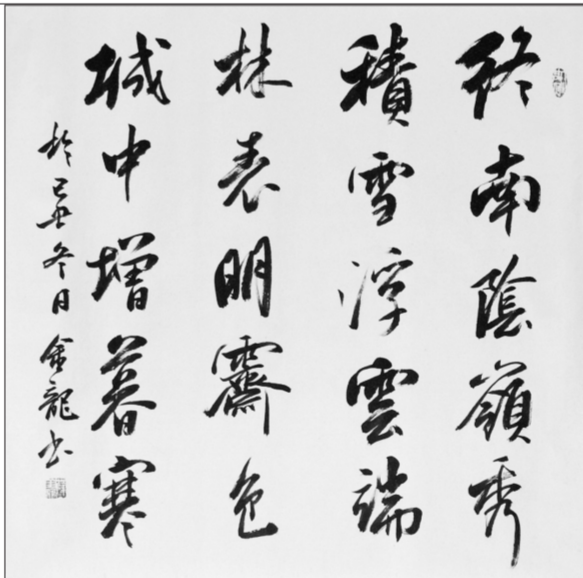 終南陰嶺秀
積雪浮雲端
林表明霽色
城中增暮寒
於己丑冬日金龍书